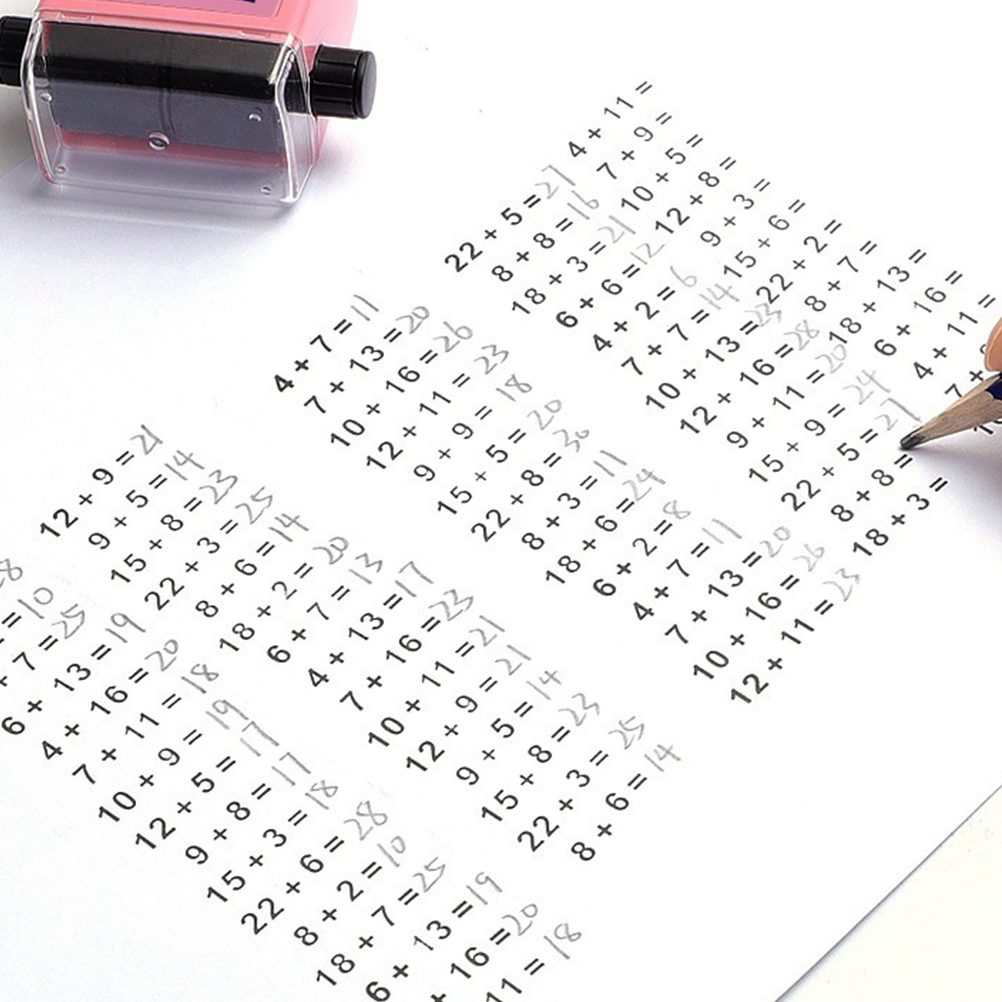 4 + 11 =
7 + 9 =
10 + 5 =
12 + 8 =
9 + 3 =
15 + 6 =
22 + 2 =
8 + 7 =
18 + 13 =
6 + 16 =
4 + 11 =
7 +
22 + 5 = 27
8 + 8 = 16
18 + 3 = 21
6 + 6 = 12
4 + 2 = 6
7 + 7 = 14
10 + 13 = 23
12 + 16 = 28
9 + 11 = 20
15 + 9 = 24
22 + 5 = 27
8 + 8 =
18 + 3 =
4 + 7 = 11
7 + 13 = 20
10 + 16 = 26
12 + 11 = 23
9 + 9 = 18
15 + 5 = 20
22 + 8 = 30
8 + 3 = 11
18 + 6 = 24
6 + 2 = 8
4 + 7 = 11
7 + 13 = 20
10 + 16 = 26
12 + 11 = 23
12 + 9 = 21
9 + 5 = 14
15 + 8 = 23
22 + 3 = 25
8 + 6 = 14
18 + 2 = 20
6 + 7 = 13
4 + 13 = 17
7 + 16 = 23
10 + 11 = 21
12 + 9 = 21
9 + 5 = 14
15 + 8 = 23
22 + 3 = 25
8 + 6 = 14
8
= 10
+ 7 = 25
6 + 13 = 19
4 + 16 = 20
7 + 11 = 18
10 + 9 = 19
12 + 5 = 17
9 + 8 = 17
15 + 3 = 18
22 + 6 = 28
8 + 2 = 10
18 + 7 = 25
6 + 13 = 19
+ 16 = 20
11 = 18